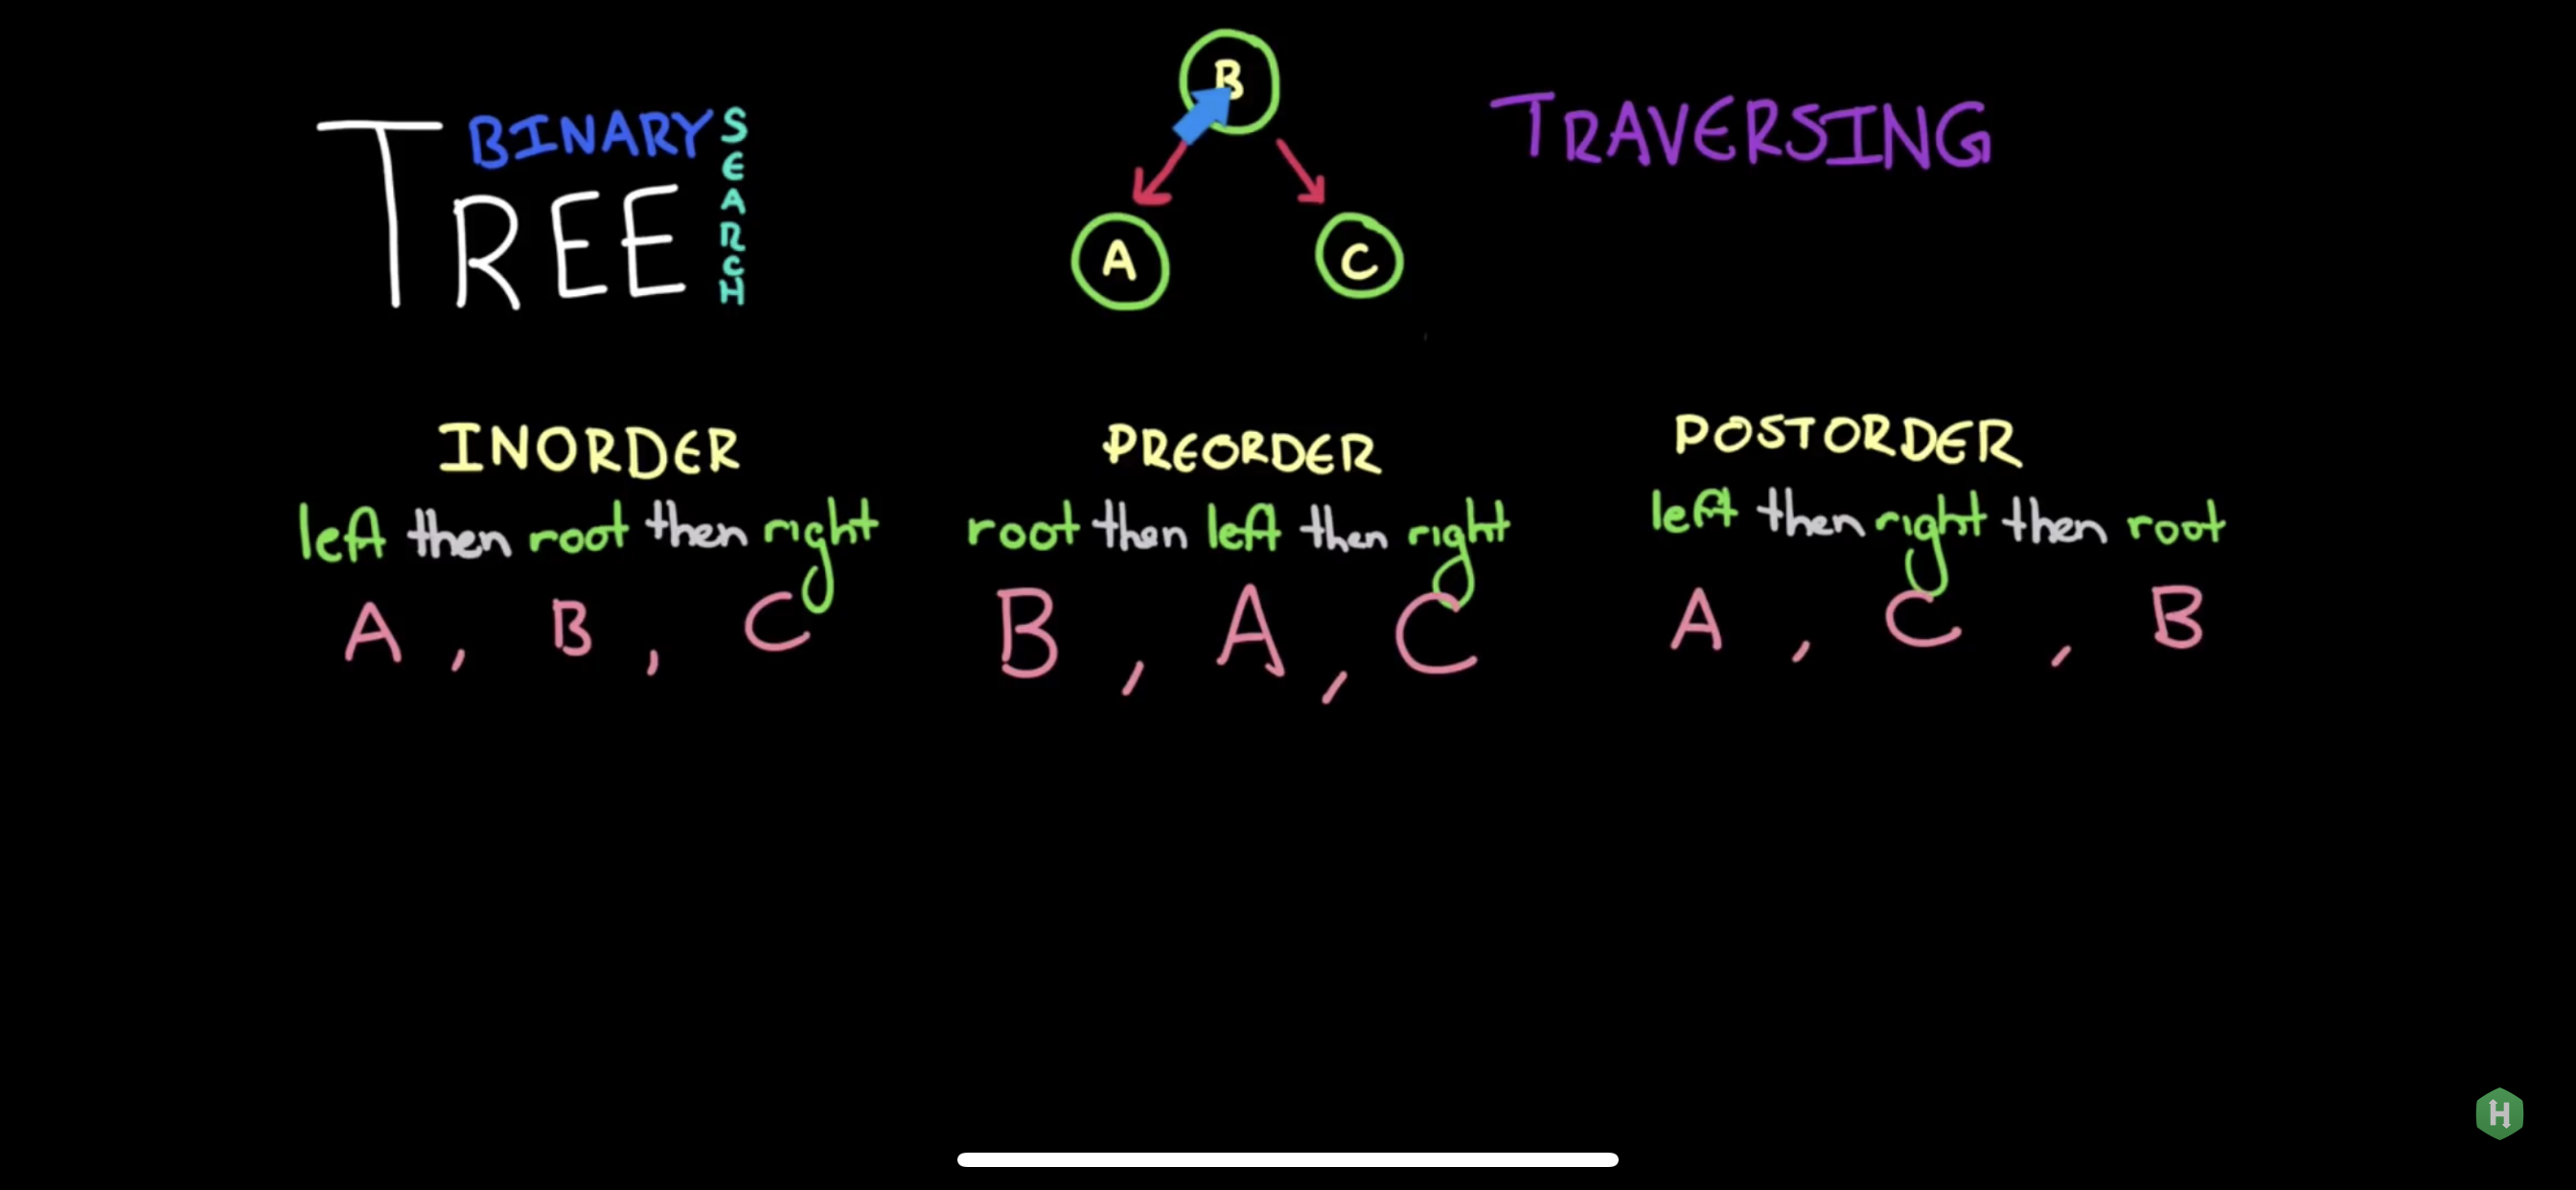 TREE
BINARY
SEARCH
B
A
C
TRAVERSING
INORDER
left then root then right
A , B , C
PREORDER
root then left then right
B , A , C
POSTORDER
left then right then root
A , C , B
H